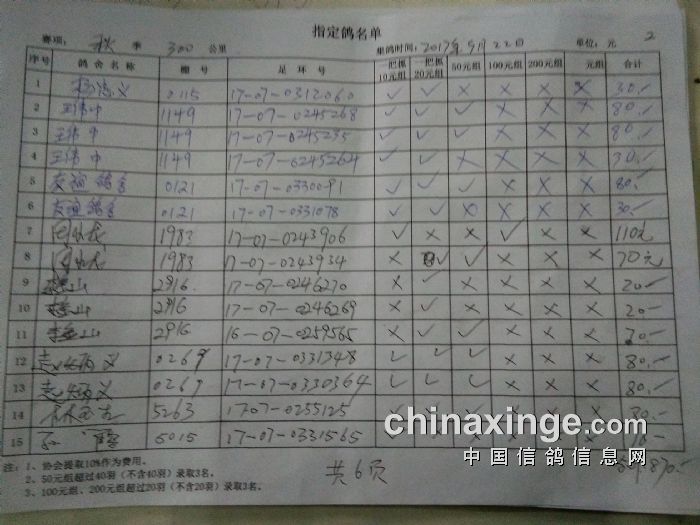 指定鸽名单
赛项: 秋 季 300 公里 集鸽时间: 2017年9月22日 单位: 元 2
序号 鸽舍名称 棚号 足环号 一把抓10元组 一把抓20元组 50元组 100元组 200元组 元组 合计
1 0115 17-07-0312060 ✓ ✓ × × × × 30.-
2 王伟中 1149 17-07-0245268 ✓ ✓ ✓ × × × 80.-
3 王伟中 1149 17-07-0245235 ✓ ✓ ✓ × × × 80.-
4 王伟中 1149 17-07-0245264 ✓ ✓ × × × × 30.-
5 友谊鸽舍 0121 17-07-0330091 ✓ ✓ ✓ × × × 80.-
6 友谊鸽舍 0121 17-07-0331078 ✓ ✓ × × × × 30.-
7 1983 17-07-0243906 ✓ × × ✓ × × 110元
8 1983 17-07-0243934 × ✓ ✓ × × × 70元
9 2916 17-07-0246270 × ✓ × × × × 20.-
10 2916 17-07-0246269 × ✓ × × × × 20.-
11 2916 16-07-0259565 × ✓ ✓ × × × 70.-
12 0269 17-07-0331348 ✓ ✓ ✓ × × × 80.-
13 0269 17-07-0330364 ✓ ✓ ✓ × × × 80.-
14 5263 17-07-0255125 80.-
15 5015 17-07-0331565
注: 1、协会提取10%作为费用。
2、50元组超过40羽(不含40羽)录取3名。
3、100元组、200元组超过20羽(不含20羽)录取3名。
共6页
870.-
chinaxinge.com
中国信鸽信息网